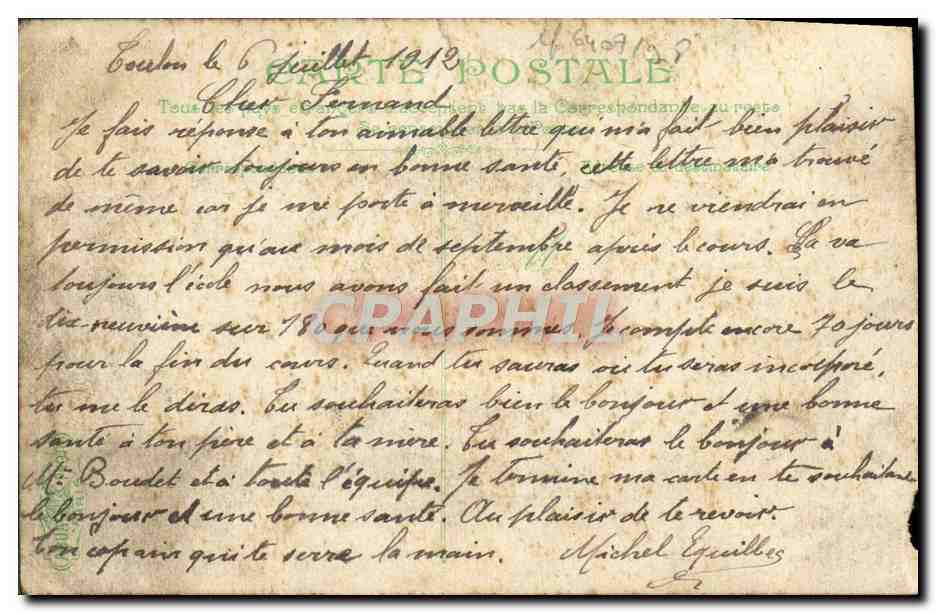 Toulon le 6 juillet 1912
CARTE POSTALE
Cher Fernand
Je fais réponse a ton aimable lettre qui m'a fait bien plaisir
de te savoir toujours en bonne santé, cette lettre m'a trouvé
de même car je me porte à merveille. Je ne viendrai en
permission qu'au mois de septembre après le cours. Ca va
toujours l'école nous avons fait un classement je suis le
dix-neuvième sur 180 que nous sommes. Je compte encore 70 jours
pour la fin du cours. Quand tu sauras ou tu seras incorporé,
tu me le diras. Tu souhaiteras bien le bonjour et une bonne
santé à ton père et à ta mère. Tu souhaiteras le bonjour à
Mr Boudet et à toute l'équipe. Je termine ma carte en te souhaitant
le bonjour et une bonne santé. Au plaisir de te revoir.
Ton copain qui te serre la main. Michel Equilbec
CPAPHIL